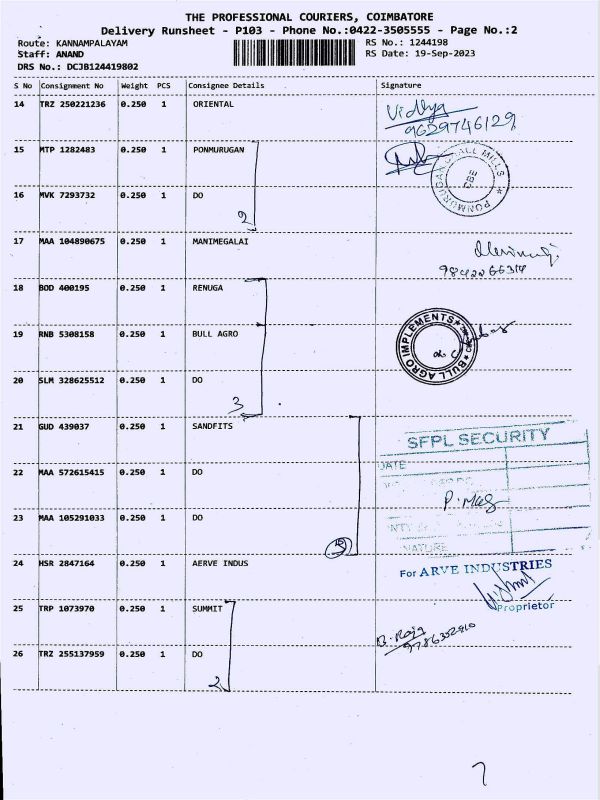 THE PROFESSIONAL COURIERS, COIMBATORE
Delivery Runsheet - P103 - Phone No.:0422-3505555 - Page No.:2
Route: KANNAMPALAYAM RS No.: 1244198
Staff: ANAND RS Date: 19-Sep-2023
DRS No.: DCJB124419802
S No Consignment No Weight PCS Consignee Details Signature
14 TRZ 250221236 0.250 1 ORIENTAL Vidya
9629746129
15 MTP 1282483 0.250 1 PONMURUGAN
PONMURUGAN MILLS CBE
16 MVK 7293732 0.250 1 DO
2
17 MAA 104890675 0.250 1 MANIMEGALAI
9842266314
18 BOD 400195 0.250 1 RENUGA
19 RNB 5308158 0.250 1 BULL AGRO
BULL AGRO IMPLEMENTS
20 SLM 328625512 0.250 1 DO
3
21 GUD 439037 0.250 1 SANDFITS
SFPL SECURITY
DATE
22 MAA 572615415 0.250 1 DO
23 MAA 105291033 0.250 1 DO
NATURE
24 HSR 2847164 0.250 1 AERVE INDUS
For ARVE INDUSTRIES
Proprietor
25 TRP 1073970 0.250 1 SUMMIT
B. Raja
26 TRZ 255137959 0.250 1 DO
2
7